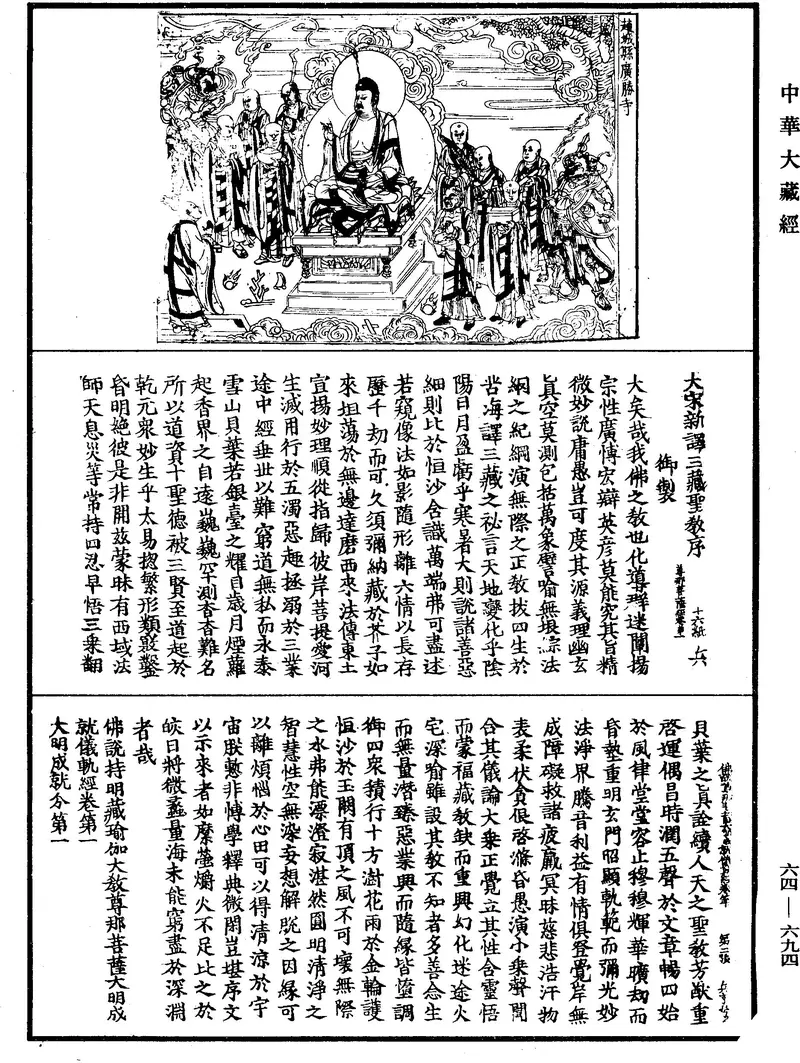 中華大藏經
趙城縣廣勝寺
大宋新譯三藏聖教序
御製
大矣哉我佛之教也化導群迷闡揚
宗性廣博宏辯英彥莫能究其旨精
微妙說庸愚豈可度其源義理幽玄
真空莫測包括萬象譬喻無垠綜法
網之紀綱演無際之正教拔四生於
苦海譯三藏之祕言天地變化乎陰
陽日月盈虧乎寒暑大則說諸善惡
細則比於恒沙含識萬端弗可盡述
若窺像法如影隨形離六情以長存
歷千劫而可久須彌納藏於芥子如
來坦蕩於無邊達磨西來法傳東土
宣揚妙理順從指歸彼岸菩提愛河
生滅用行於五濁惡趣拯溺於三業
途中經垂世以難窮道無私而永泰
雪山貝葉若銀臺之耀目歲月煙蘿
起香界之自遠巍巍罕測杳杳難名
所以道資十聖德被三賢至道起於
乾元衆妙生乎太易揔繁形類竅鑿
昏明絕彼是非開茲蒙昧有西域法
師天息災等常持四忍早悟三乘翻
貝葉之真詮續人天之聖教芳猷重
啓運偶昌時潤五聲於文章暢四始
於風律堂堂容止穆穆輝華曠劫而
昏墊重明玄門昭顯軌範而彌光妙
法淨界騰音利益有情俱登覺岸無
成障礙救諸疲羸冥昧慈悲浩汗物
表柔伏貪很啓滌昏愚演小乘聲聞
合其儀論大乘正覺立其性含靈悟
而蒙福藏教缺而重興幻化迷途火
宅深喻雖設其教不知者多善念生
而無量潛臻惡業興而隨緣皆墮調
御四衆積行十方澍花雨於金輪護
恒沙於玉闕有頂之風不可壞無際
之水弗能漂澄寂湛然圓明清淨之
智慧性空無染妄想解脫之因緣可
以離煩惱於心田可以得清涼於宇
宙朕慙非博學釋典微閑豈堪序文
以示來者如摩螢爝火不足比之於
皎日將微蠡量海未能窮盡於深淵
者哉
佛說持明藏瑜伽大教尊那菩薩大明成
就儀軌經卷第一
大明成就分第一
六四—六九四